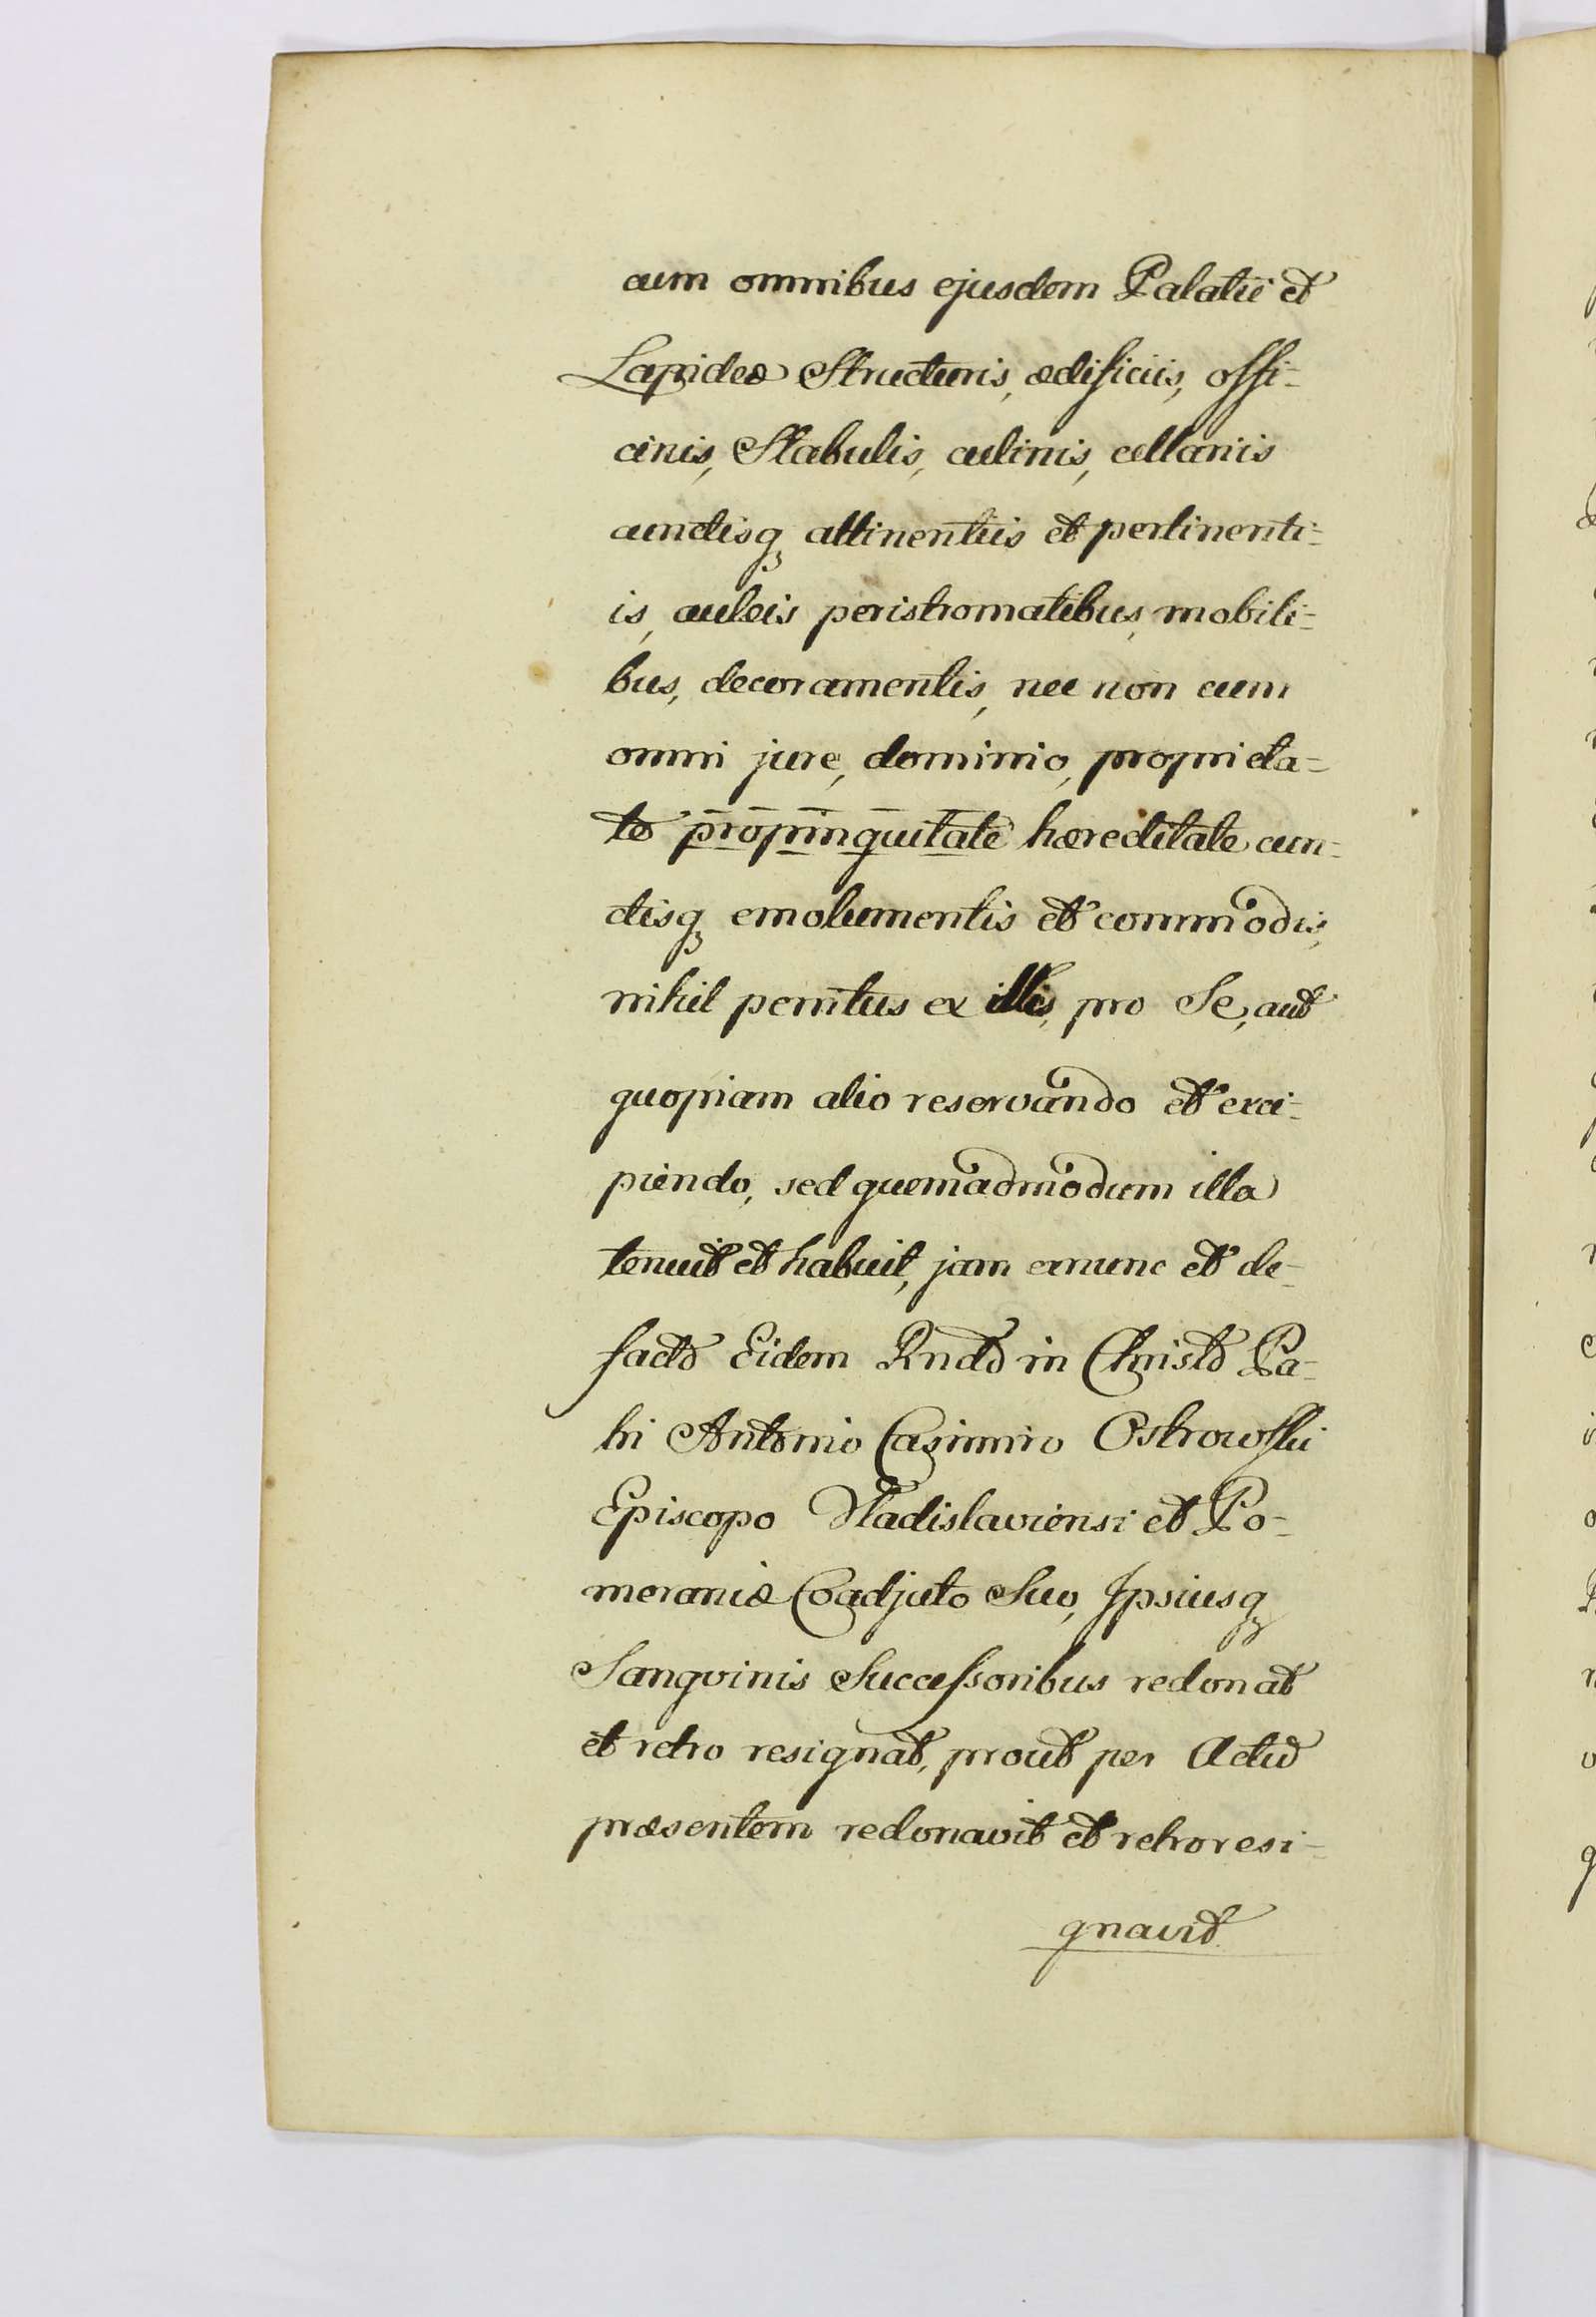 cum omnibus ejusdem Palatii et
Lapideæ Structuris, ædificiis, offi-
cinis, Stabulis, culinis, cellariis
cunctisq attinentiis et pertinenti-
is, auleis peristromatibus, mobili-
bus, decoramentis, nec non cum
omni jure, dominio, proprieta-
te propinquitate hæreditate cun-
ctisq emolumentis et commodis,
nihil penitus ex illis, pro Se, aut
quopiam alio reservando et exci-
piendo, sed quemadmodum illa
tenuit et habuit, jam exnunc et de-
facto Eidem Rndo in Christo Pa-
tri Antonio Casimiro Ostrowski
Episcopo Vladislaviensi et Po-
meraniæ Coadjuto Suo, Ipsiusq
Sangvinis Successoribus redonat
et retro resignat, prout per Actum
præsentem redonavit et retroresi-
gnavit